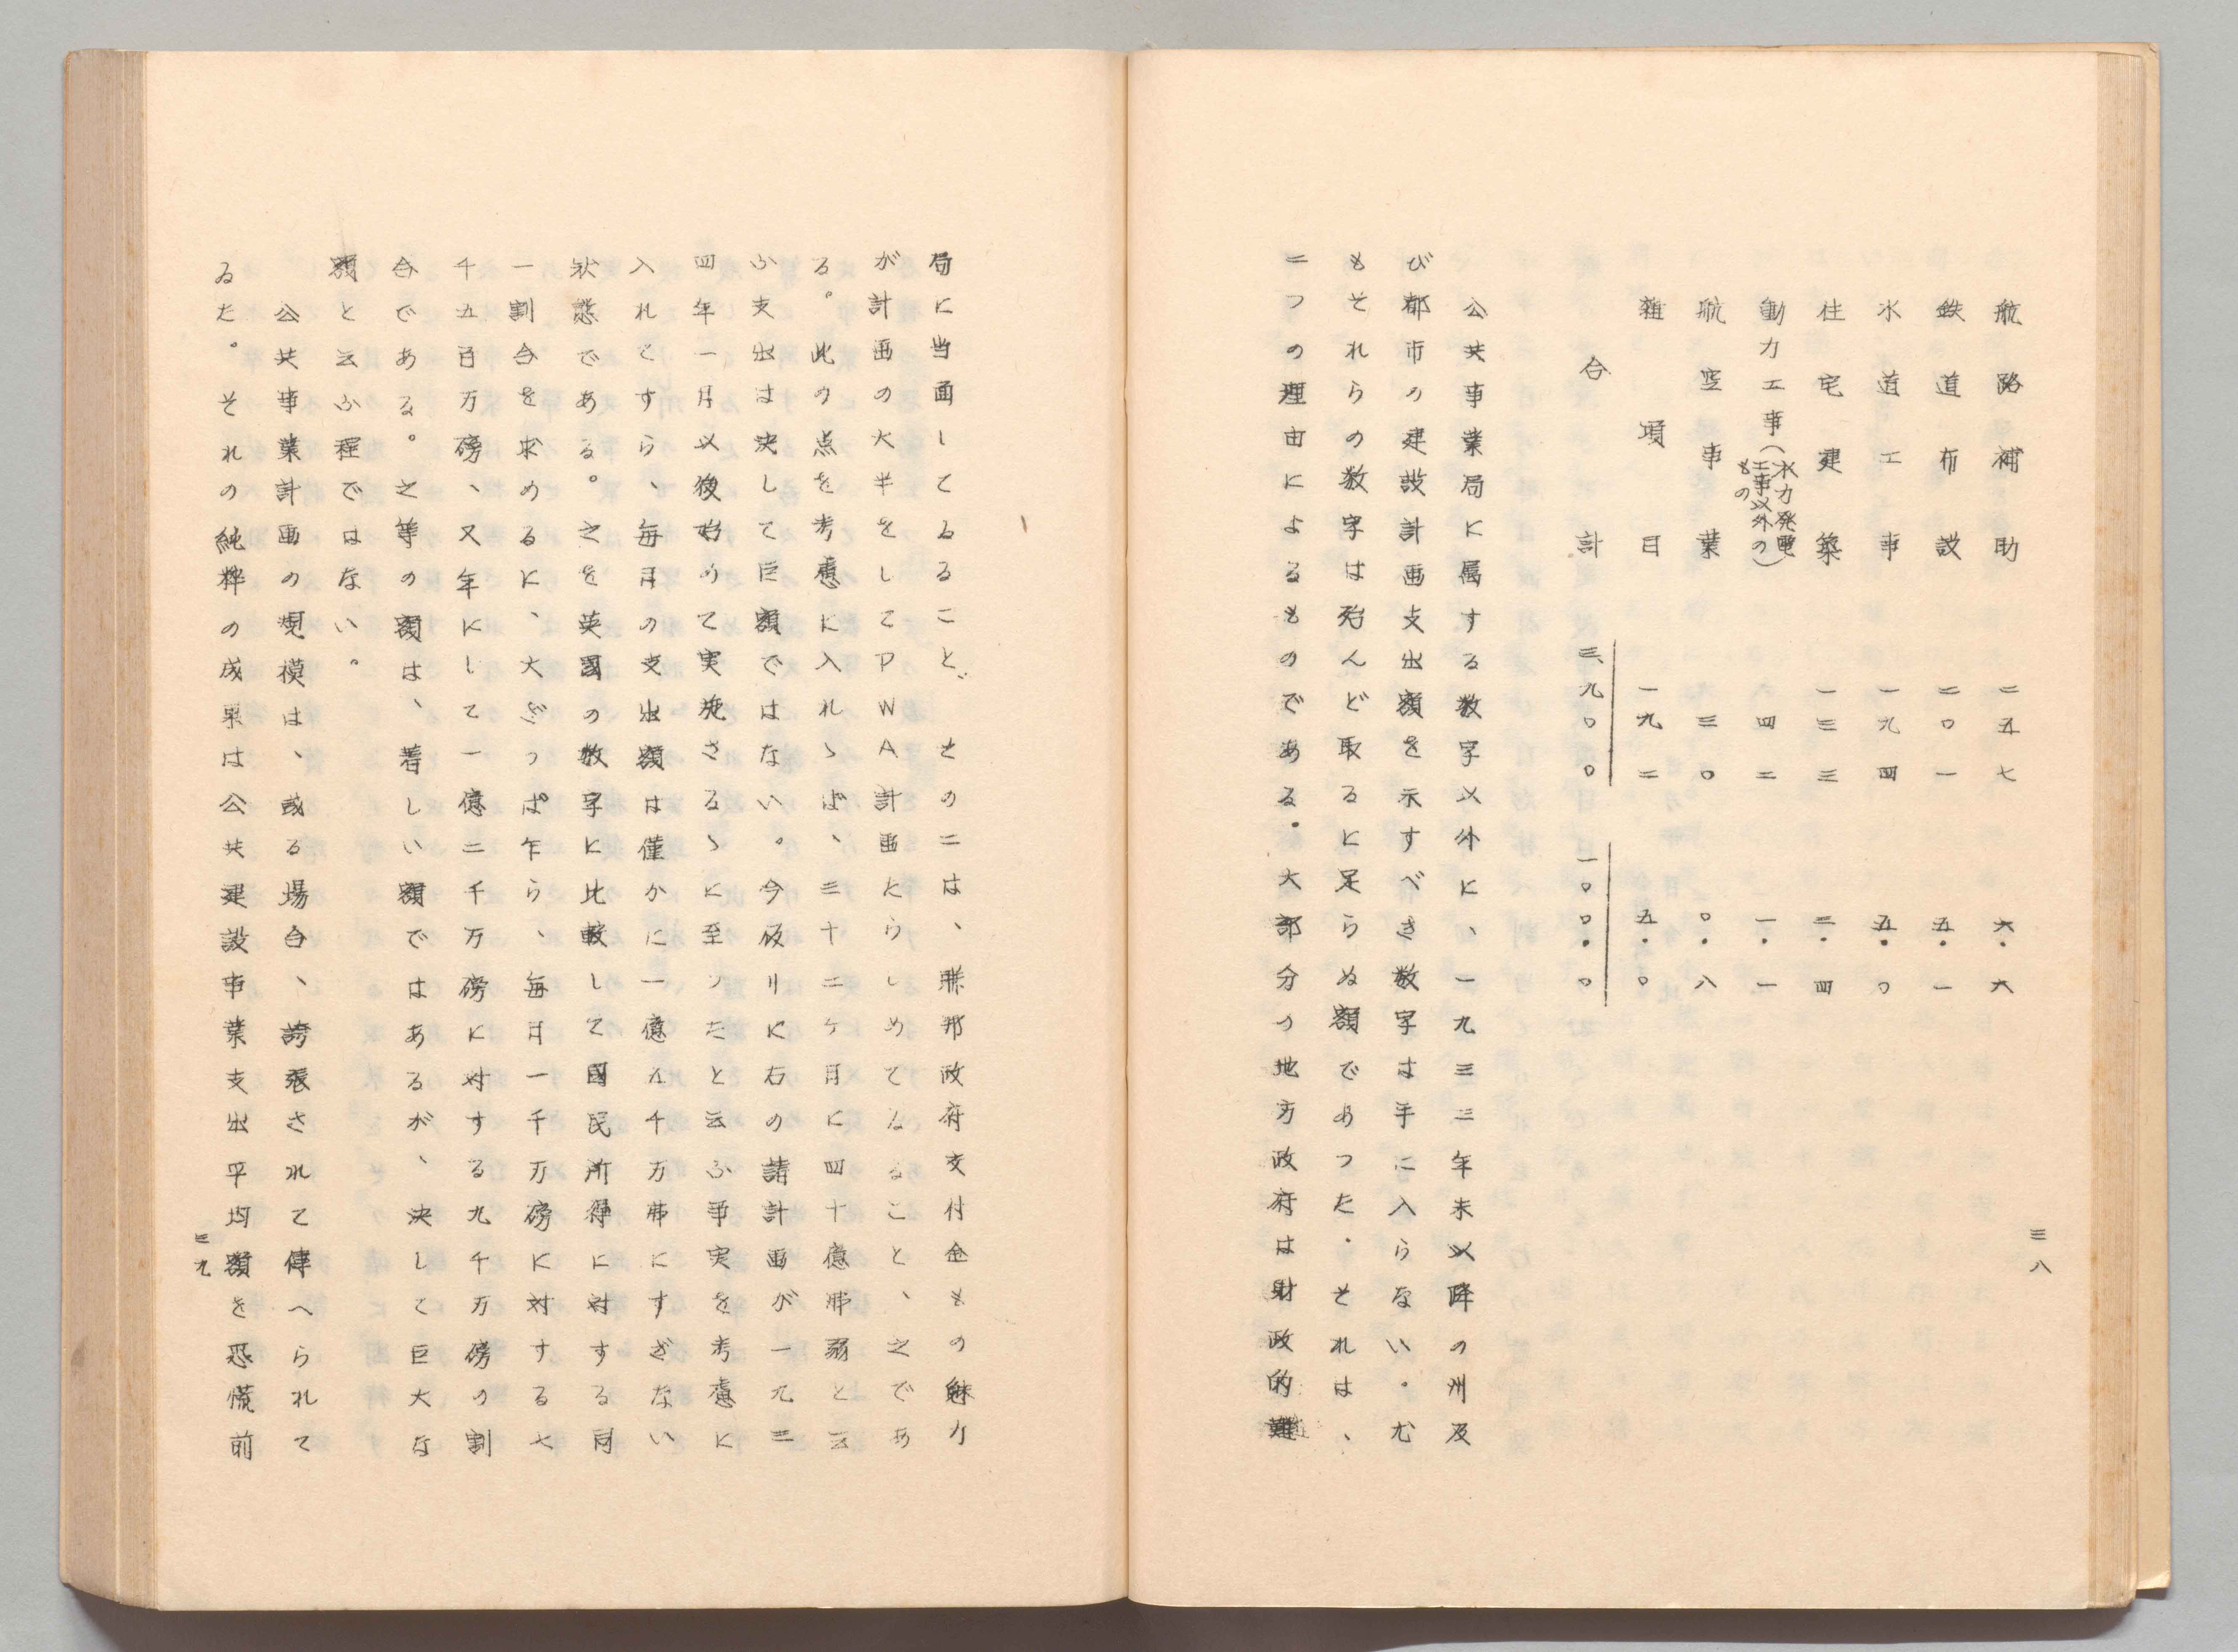 三八
航路補助 二五七 六・六
鉄道布設 二〇一 五・一
水道工事 一九四 五・〇
住宅建築 一三三 三・四
動力工事(水力発電工事以外のもの) 四二 一・一
航空事業 三〇 〇・八
雑項目 一九二 五・〇
合計 三、九〇〇 一〇〇・〇
公共事業局に属する数字以外に、一九三三年末以降の州及
び都市の建設計画支出額を示すべき数字は手に入らない。尤
もそれらの数字は殆んど取るに足らぬ額であつた。それは、
二つの理由によるものである。大部分の地方政府は財政的難
局に当面してゐること、その二は、聯邦政府交付金もの魅力
が計画の大半をしてPWA計画たらしめてゐること、之であ
る。此の点を考慮に入れゝば、三十二ヶ月に四十億弗弱と云
ふ支出は決して巨額ではない。今仮りに右の諸計画が一九三
四年一月以後始めて実施さるゝに至つたと云ふ事実を考慮に
入れとすら、毎月の支出額は僅かに一億五千万弗にすぎない
状態である。之を英國の数字に比較して國民所得に対する同
一割合を求めるに、大ざつぱ乍ら、毎月一千万磅に対する七
千五百万磅、又年にして一億二千万磅に対する九千万磅の割
合である。之等の額は、着しい額ではあるが、決して巨大な
額と云ふ程ではない。
公共事業計画の規模は、或る場合、誇張されて傳へられて
ゐた。それの純粋の成果は公共建設事業支出平均額を恐慌前
三九